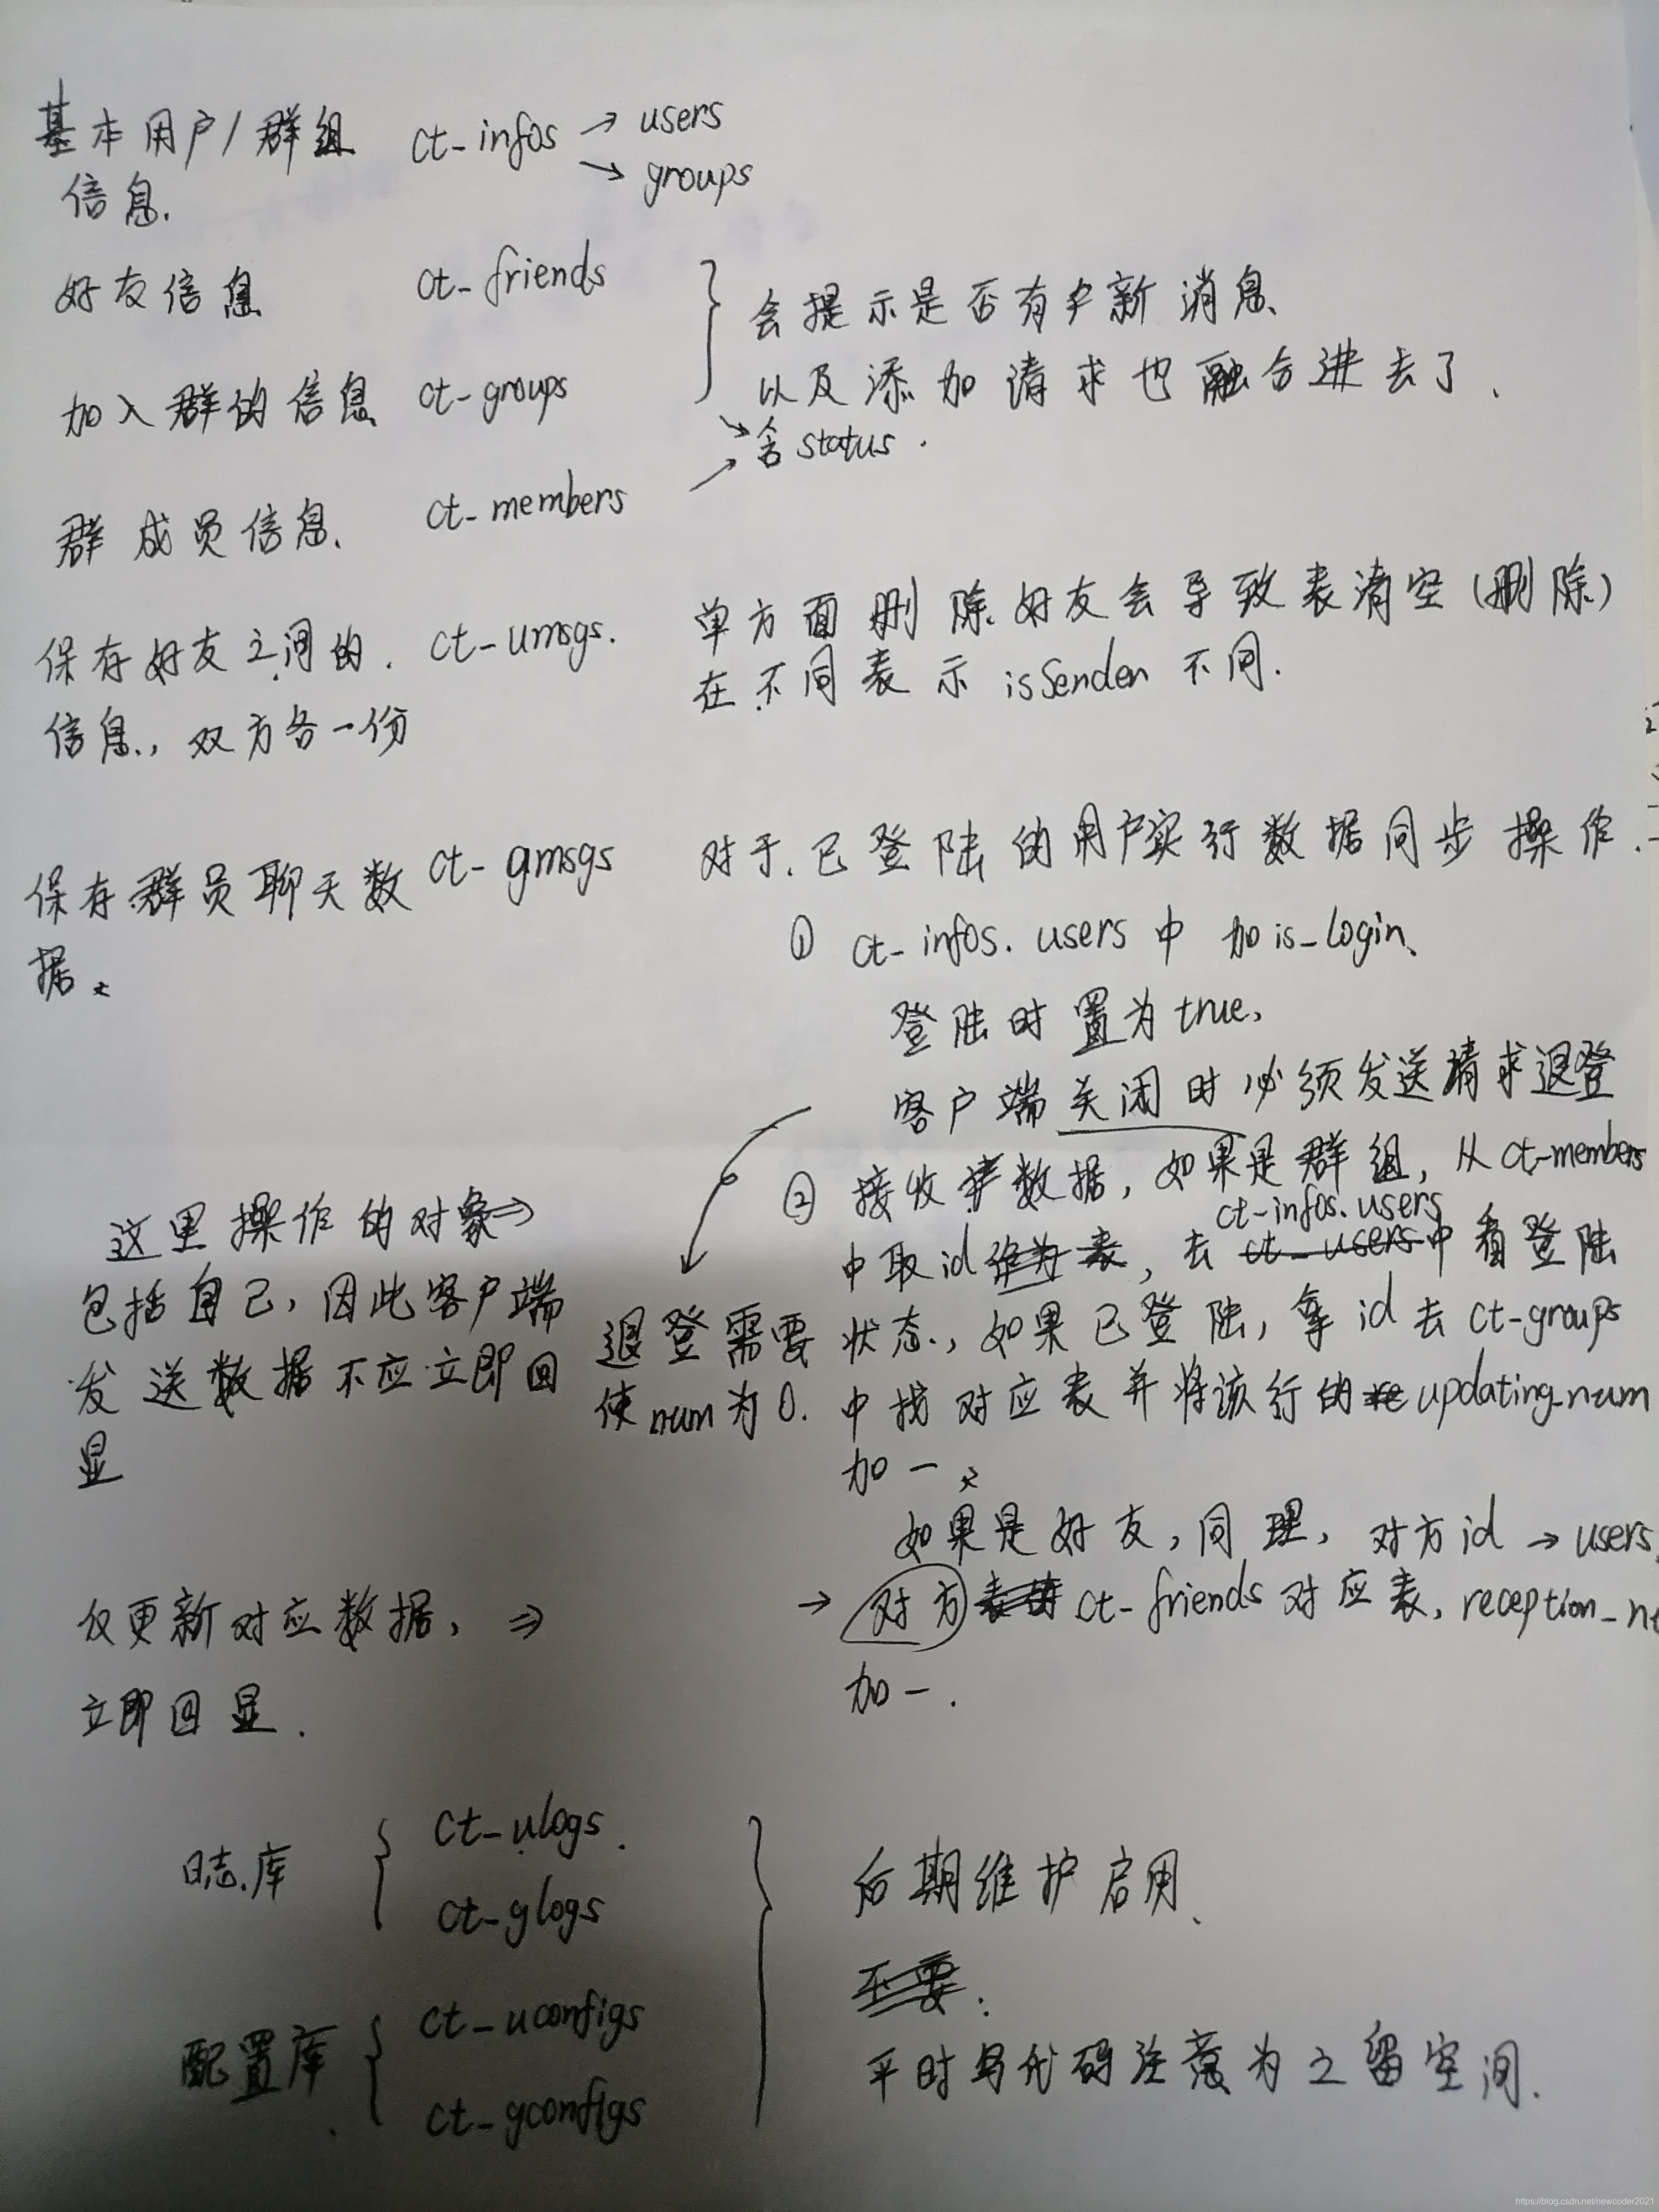 基本用户/群组 ct-infos → users
→ groups
信息.
好友信息 ct-friends
会提示是否有新消息、
加入群的信息 ct-groups
以及添加请求也融合进去了.
含status.
群成员信息. ct-members
单方面删除好友会导致表清空(删除)
保存好友之间的. ct-umsgs.
在不同表示 isSender 不同.
信息., 双方各一份
对于.已登陆的用户实行数据同步操作.
保存群员聊天数 ct-gmsgs
据.
① ct-infos. users 中 加 is-login、
登陆时置为true,
客户端关闭时必须发送请求退登
② 接收数据, 如果是群组, 从ct-members
ct-infos.users
中取id, 去 ct-users 中看登陆
状态., 如果已登陆, 拿id去 ct-groups
中找对应表并将该行的 updating-num
加一.
退登需要
使num为0.
这里操作的对象⇒
包括自己, 因此客户端
发送数据不应立即回
显
如果是好友, 同理, 对方id → users,
→ 对方 ct-friends 对应表, reception-
加一.
仅更新对应数据, ⇒
立即回显.
日志.库 { ct-ulogs.
ct-glogs
后期维护启用、
不要.
配置库 { ct-uconfigs
ct-gconfigs
平时写代码注意为之留空间.
https://blog.csdn.net/newcoder2021